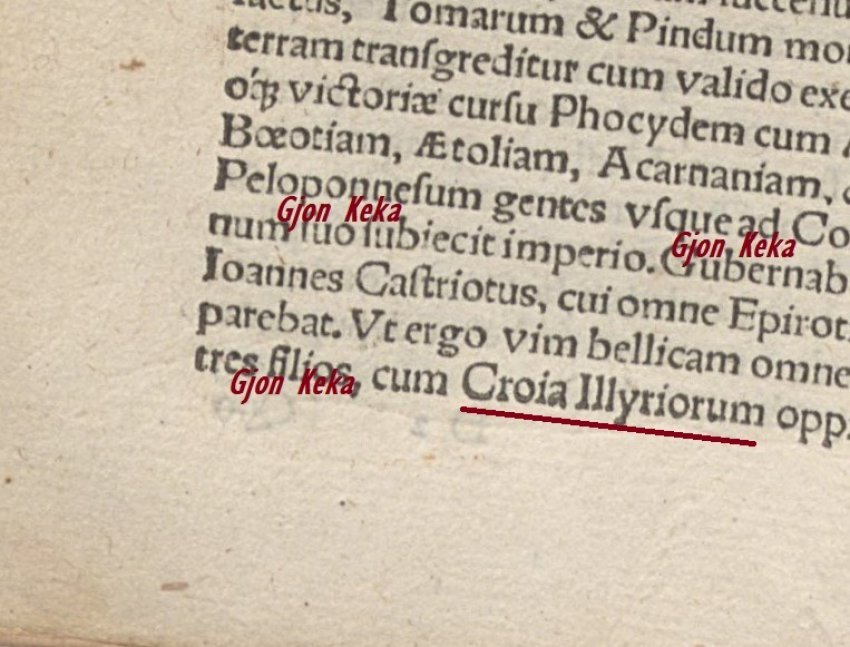 Tomarum & Pindum mon
terram tranſgreditur cum valido exe
oq́ꝫ victoriæ curſu Phocydem cum
Bœotiam, Ætoliam, Acarnaniam,
Peloponneſum gentes vſque ad Co
Gjon Keka
Gjon Keka
num ſuo ſubiecit imperio. Gubernab
Ioannes Caſtriotus, cui omne Epirot
parebat. Vt ergo vim bellicam omne
tres filios, cum Croia Illyriorum opp
Gjon Keka